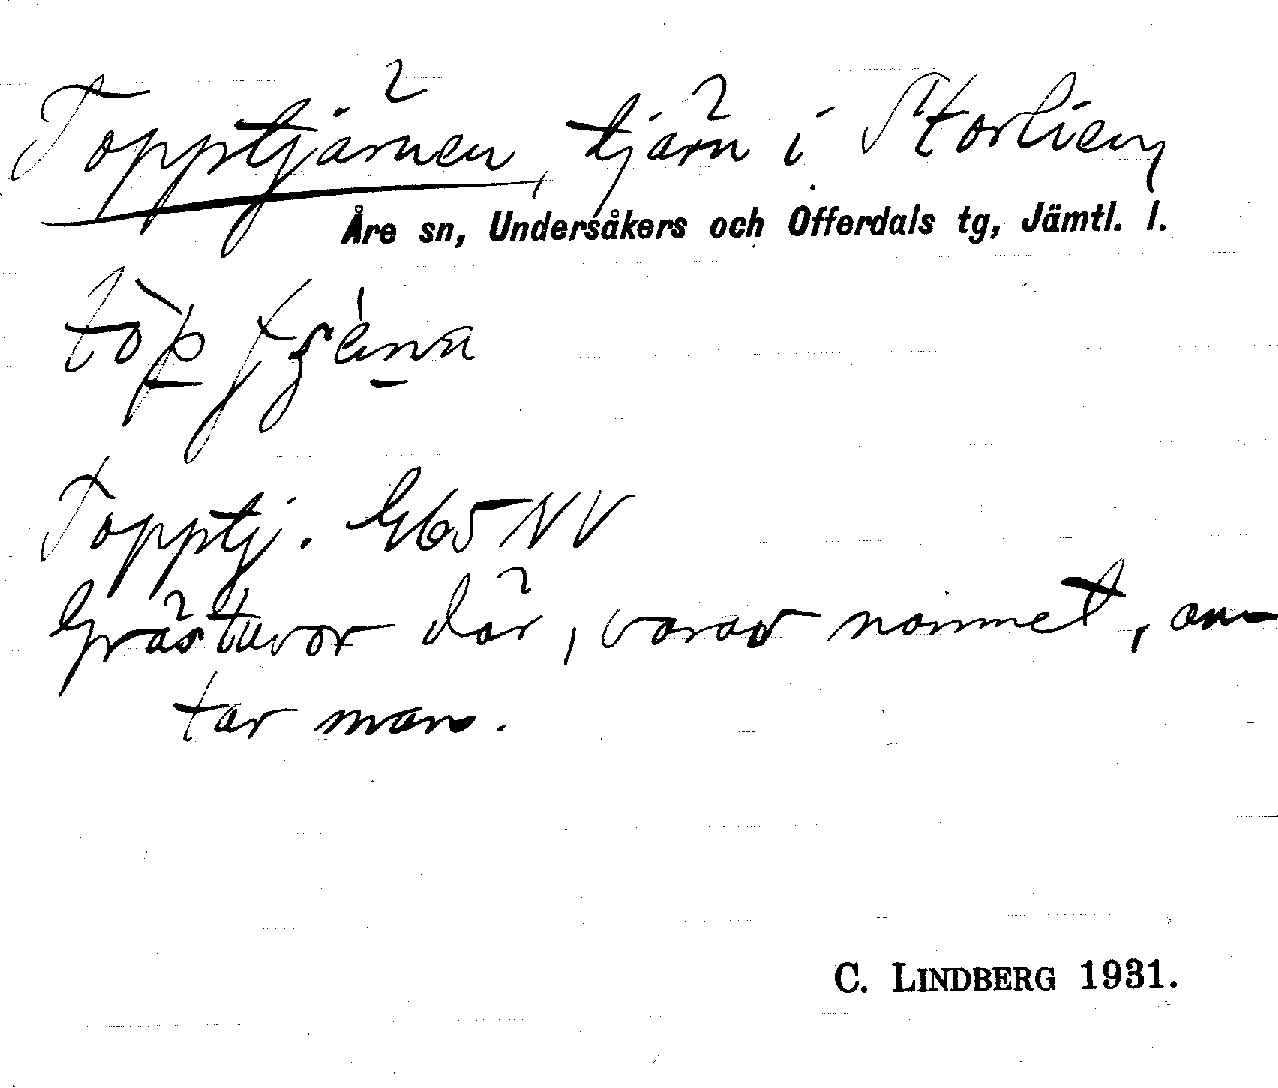 Topptjärnen, tjärn i Storlien,
Åre sn, Undersåkers och Offerdals tg, Jämtl. l.
Topptj. G65NV
Grästuvor där, varav namnet, an-
tar man.
C. LINDBERG 1931.